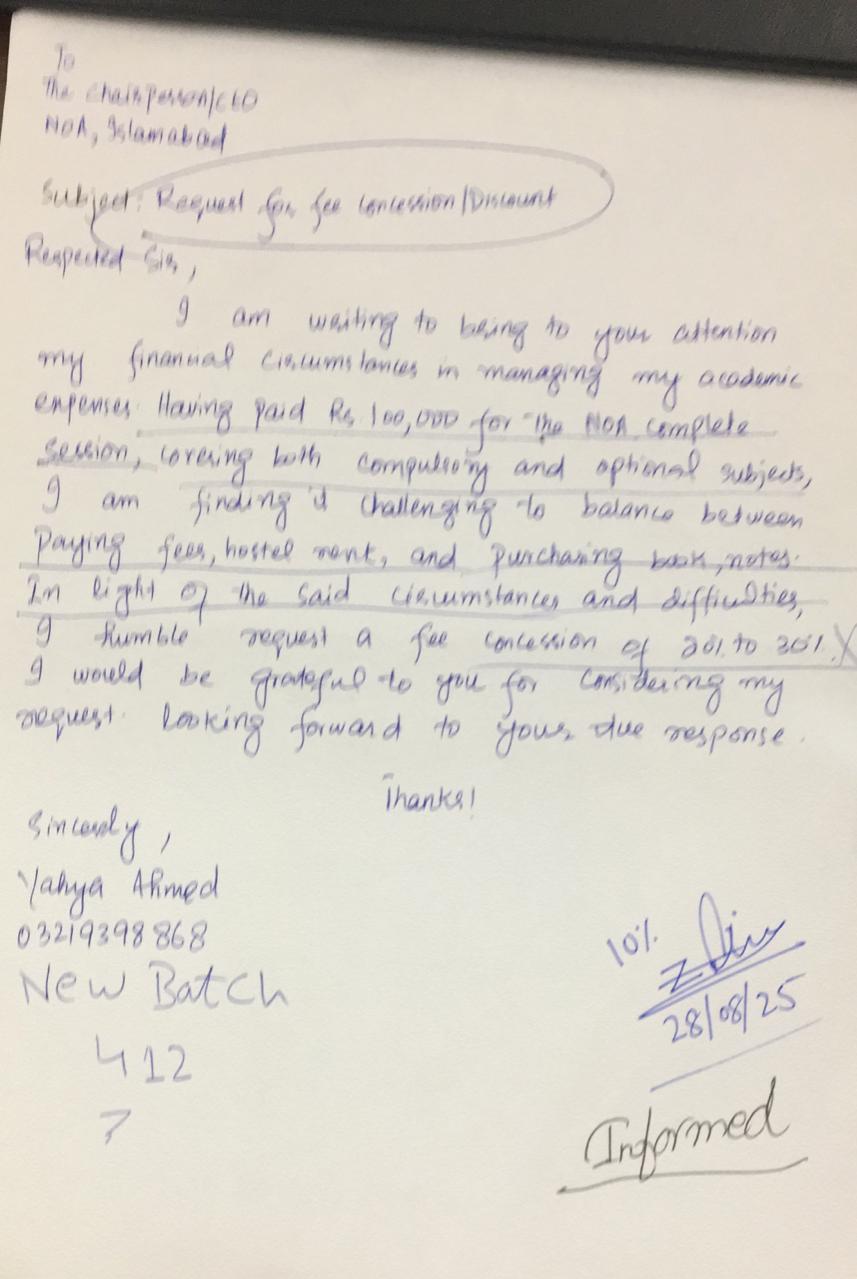 To
The Chairperson/CEO
NOA, Islamabad
Subject: Request for fee concession/Discount
Respected Sir,
I am writing to bring to your attention
my financial circumstances in managing my academic
expenses. Having paid Rs. 100,000 for the NOA complete
session, covering both compulsory and optional subjects,
I am finding it challenging to balance between
paying fees, hostel rent, and purchasing book, notes.
In light of the said circumstances and difficulties,
I humble request a fee concession of 20% to 30%.
I would be grateful to you for considering my
request. Looking forward to your due response.
Thanks!
Sincerely,
Yahya Ahmed
03219398868
New Batch
412
7
10%
28/08/25
Informed